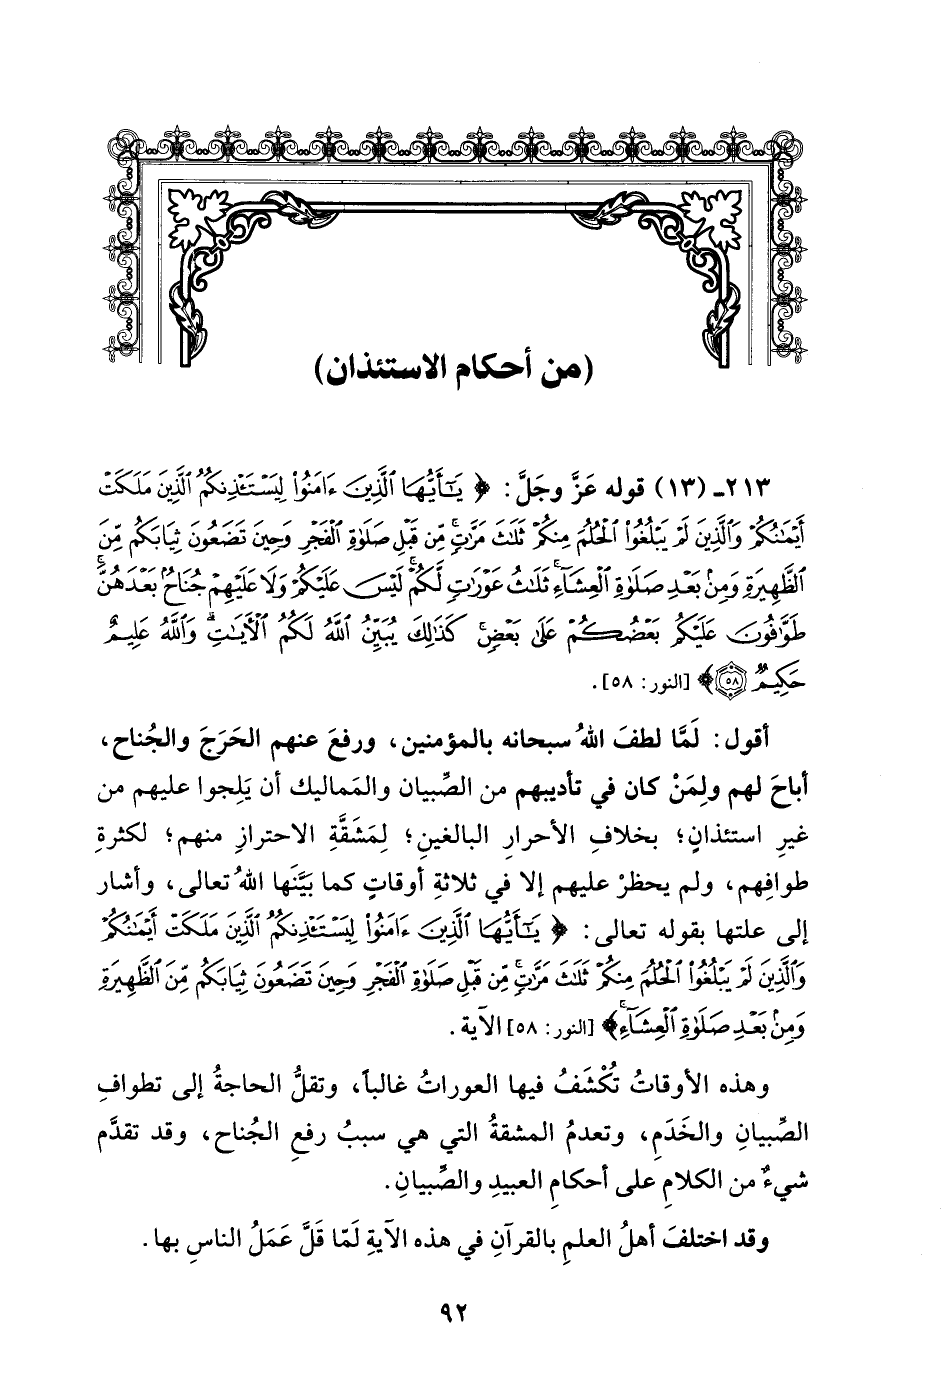 (من أحكام الاستئذان)
٢١٣ـ (١٣) قوله عَزَّ وجَلَّ: ﴿ يَٰٓأَيُّهَا ٱلَّذِينَ ءَامَنُوا۟ لِيَسْتَـْٔذِنكُمُ ٱلَّذِينَ مَلَكَتْ
أَيْمَٰنُكُمْ وَٱلَّذِينَ لَمْ يَبْلُغُوا۟ ٱلْحُلُمَ مِنكُمْ ثَلَٰثَ مَرَّٰتٍ ۚ مِّن قَبْلِ صَلَوٰةِ ٱلْفَجْرِ وَحِينَ تَضَعُونَ ثِيَابَكُم مِّنَ
ٱلظَّهِيرَةِ وَمِنۢ بَعْدِ صَلَوٰةِ ٱلْعِشَآءِ ۚ ثَلَٰثُ عَوْرَٰتٍ لَّكُمْ ۚ لَيْسَ عَلَيْكُمْ وَلَا عَلَيْهِمْ جُنَاحٌۢ بَعْدَهُنَّ ۚ
طَوَّٰفُونَ عَلَيْكُم بَعْضُكُمْ عَلَىٰ بَعْضٍ ۚ كَذَٰلِكَ يُبَيِّنُ ٱللَّهُ لَكُمُ ٱلْءَايَٰتِ ۗ وَٱللَّهُ عَلِيمٌ
حَكِيمٌ ٥٨ ﴾ [النور: ٥٨].
أقول: لَمَّا لطفَ اللهُ سبحانه بالمؤمنين، ورفعَ عنهم الحَرَجَ والجُناح،
أباحَ لهم ولِمَنْ كان في تأديبهم من الصِّبيان والمَماليك أن يَلِجوا عليهم من
غيرِ استئذانٍ؛ بخلافِ الأحرارِ البالغينِ؛ لِمَشَقَّةِ الاحترازِ منهم؛ لكثرةِ
طوافِهم، ولم يحظرْ عليهم إلا في ثلاثةِ أوقاتٍ كما بَيَّنَها اللهُ تعالى، وأشار
إلى علتها بقوله تعالى: ﴿ يَٰٓأَيُّهَا ٱلَّذِينَ ءَامَنُوا۟ لِيَسْتَـْٔذِنكُمُ ٱلَّذِينَ مَلَكَتْ أَيْمَٰنُكُمْ
وَٱلَّذِينَ لَمْ يَبْلُغُوا۟ ٱلْحُلُمَ مِنكُمْ ثَلَٰثَ مَرَّٰتٍ ۚ مِّن قَبْلِ صَلَوٰةِ ٱلْفَجْرِ وَحِينَ تَضَعُونَ ثِيَابَكُم مِّنَ ٱلظَّهِيرَةِ
وَمِنۢ بَعْدِ صَلَوٰةِ ٱلْعِشَآءِ ۚ﴾ [النور: ٥٨] الآية.
وهذه الأوقاتُ تُكْشَفُ فيها العوراتُ غالباً، وتقلُّ الحاجةُ إلى تطوافِ
الصِّبيانِ والخَدَمِ، وتعدمُ المشقةُ التي هي سببُ رفعِ الجُناح، وقد تقدَّم
شيءٌ من الكلامِ على أحكامِ العبيدِ والصِّبيانِ.
وقد اختلفَ أهلُ العلمِ بالقرآنِ في هذه الآيةِ لَمّا قَلَّ عَمَلُ الناسِ بها.
٩٢